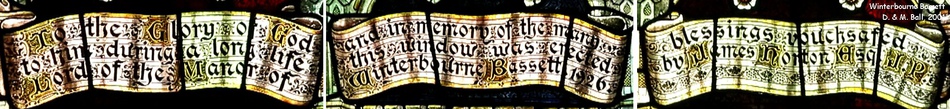 To the Glory of God
to him during a long life
Lord of the Manor of
and in memory of the many
this window was erected
Winterbourne Bassett 1926
blessings vouchsafed
by James Horton Esq J.P.
Winterbourne Bassett
D. & M. Ball,